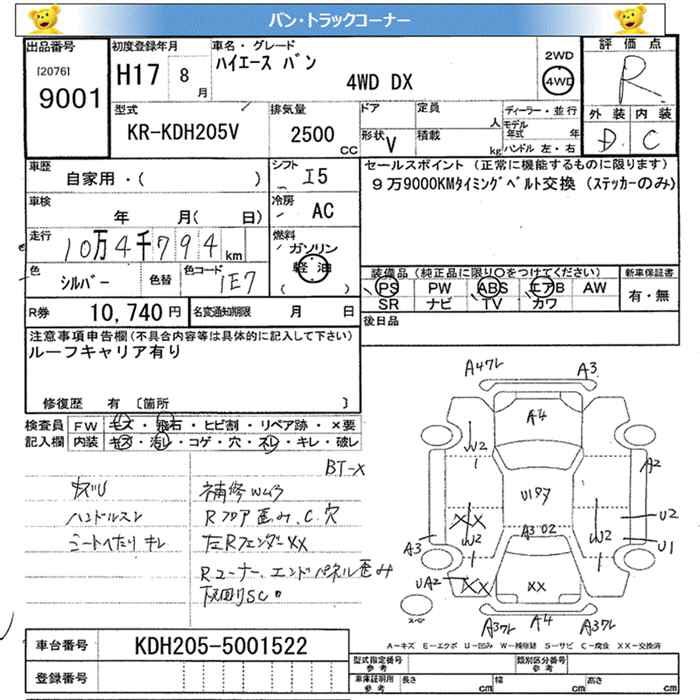 バン・トラックコーナー
出品番号
[2076]
9001
初度登録年月
H17 8月
車名・グレード
ハイエース バン
4WD DX
2WD
4WD
評価点
R
外装 内装
D C
型式
KR-KDH205V
排気量
2500 CC
ドア
定員 人
形状 V
積載 kg
ディーラー・並行
モデル年式 年
ハンドル 左・右
車歴
自家用・( )
シフト
I5
セールスポイント (正常に機能するものに限ります)
9万9000KMタイミングベルト交換 (ステッカーのみ)
車検
年 月( 日)
冷房
AC
走行
10万4千794km
燃料
ガソリン
軽油
( )
色
シルバー
色替
色コード
1E7
装備品 (純正品に限り○をつけてください)
PS PW ABS エアB AW
SR ナビ TV カワ
新車保証書
有・無
R券
10,740円
名変通知期限 月 日
後日品
注意事項申告欄(不具合内容等は具体的に記入して下さい)
ルーフキャリア有り
修復歴 有 〔箇所 〕
検査員記入欄
FW キズ・飛石・ヒビ割・リペア跡・×要
内装 キズ・汚レ・コゲ・穴・スレ・キレ・破レ
BT-X
ハンドルスレ
シートへたり キレ
補修Wムラ
Rフロア歪み、C、穴
左RフェンダーXX
Rコーナー、エンドパネル歪み
下回りSC
A47レ
A3
A4
W2
W2
A2
U197
XX
W2
W2
U2
U1
A3
A3 02
UA2
XX
XX
A37レ
A4
A37レ
スペア
A-キズ E-エクボ U-凹み W-補修跡 S-サビ C-腐食 XX-交換済
車台番号
KDH205-5001522
登録番号
型式指定番号 参考
類別区分番号 参考
車庫証明用 参考
長さ cm
幅 cm
高さ cm